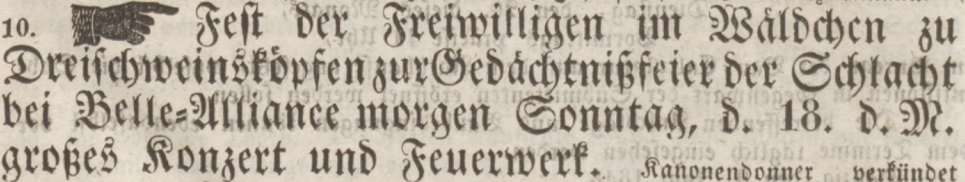 10. ☛ Fest der Freiwilligen im Wäldchen zu
Dreischweinsköpfen zur Gedächtnißfeier der Schlacht
bei Belle-Alliance morgen Sonntag, d. 18. d. M.
großes Konzert und Feuerwerk. Kanonendonner verkündet